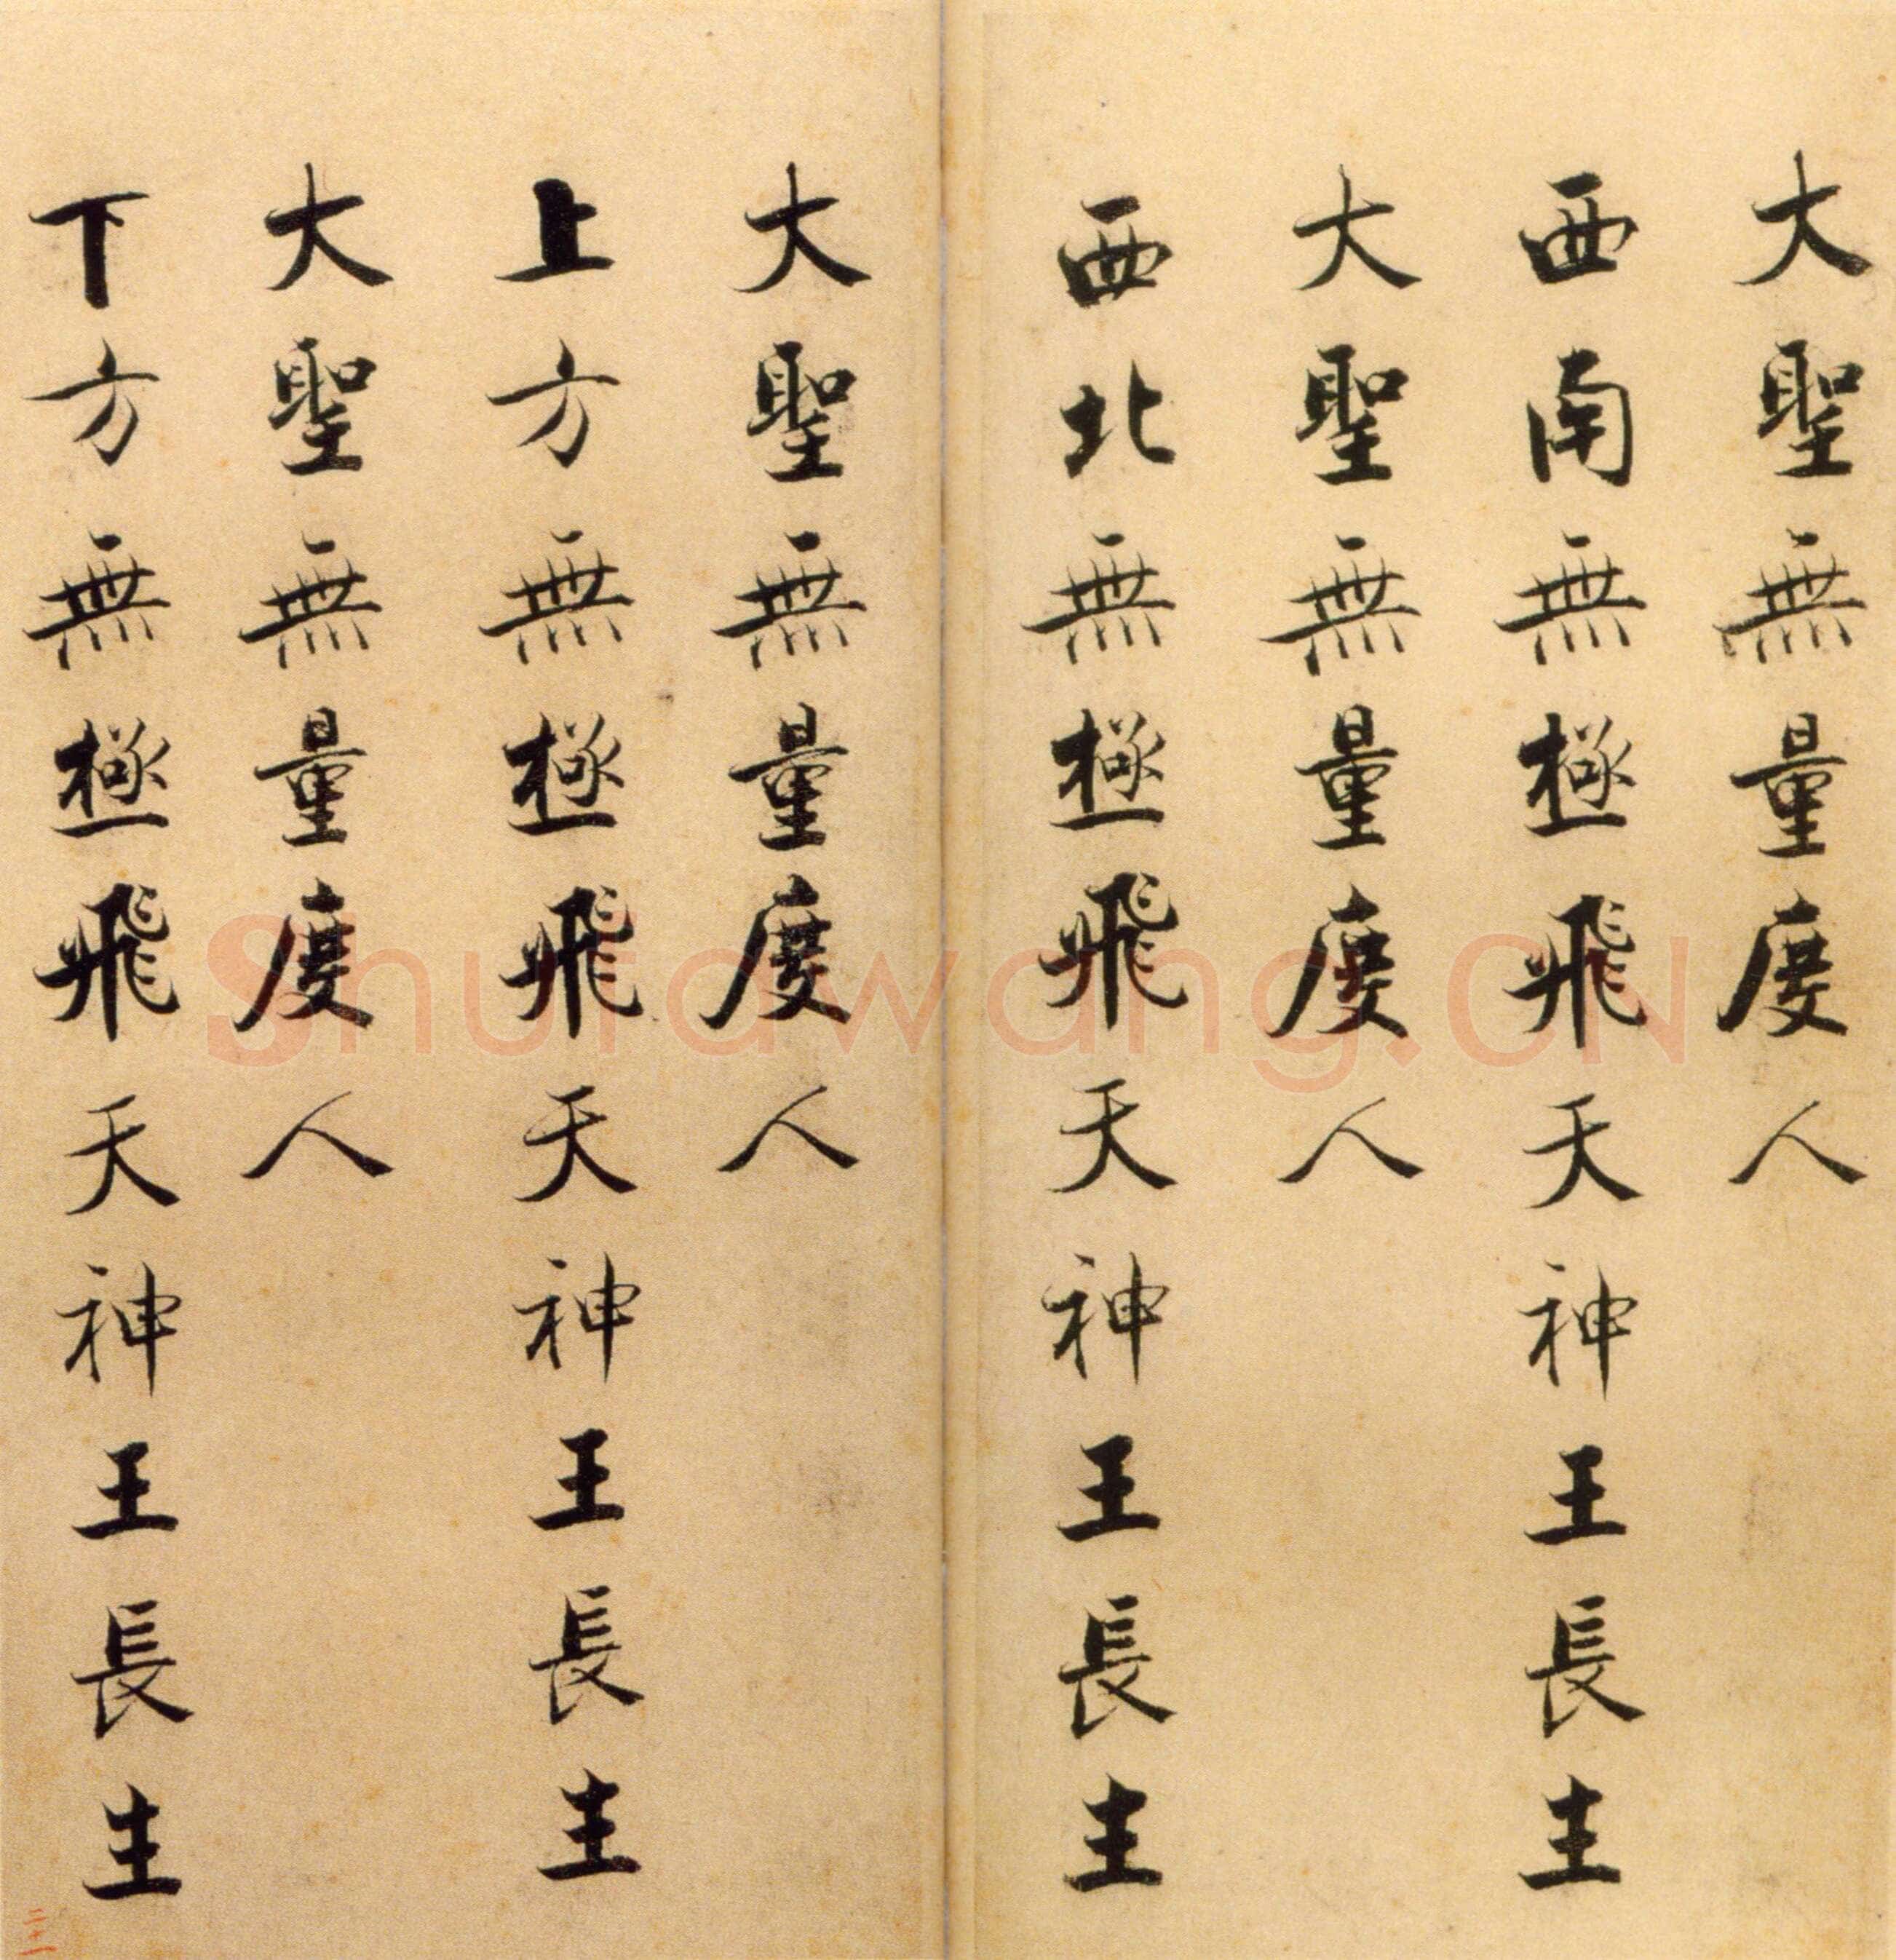 大聖無量度人
西南無極飛天神王長生
大聖無量度人
西北無極飛天神王長生
大聖無量度人
上方無極飛天神王長生
大聖無量度人
下方無極飛天神王長生
Shufawang.CN